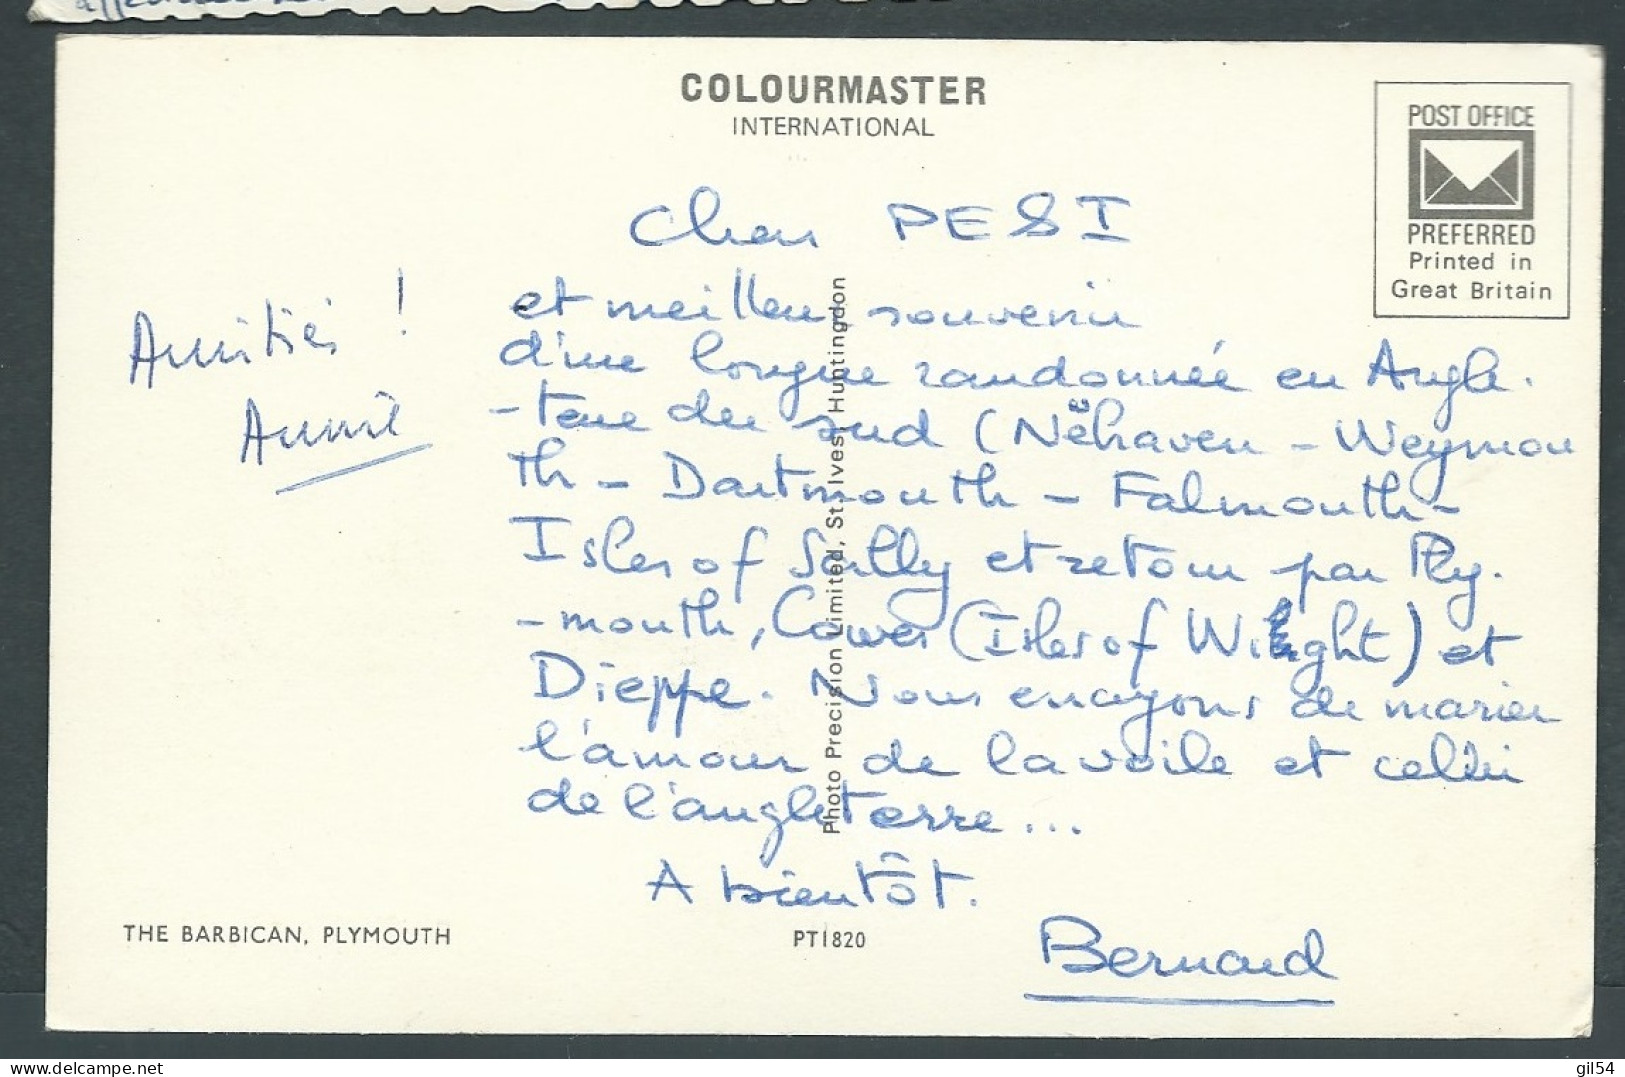 COLOURMASTER
INTERNATIONAL
POST OFFICE
PREFERRED
Printed in
Great Britain
Cher PESI
et meilleur souvenir
d'une longue randonnée en Angle.
-terre du sud (Nëhaven - Weymou
th - Dartmouth - Falmouth -
Isles of Scilly et retour par Ply.
-mouth, Cowes (Isles of Wight) et
Dieppe. Nous essayons de marier
l'amour de la voile et celui
de l'angleterre...
A bientôt.
Bernard
Amitiés !
Annie
Photo Precision Limited, St. Ives, Huntingdon
THE BARBICAN, PLYMOUTH
PT1820
gil54